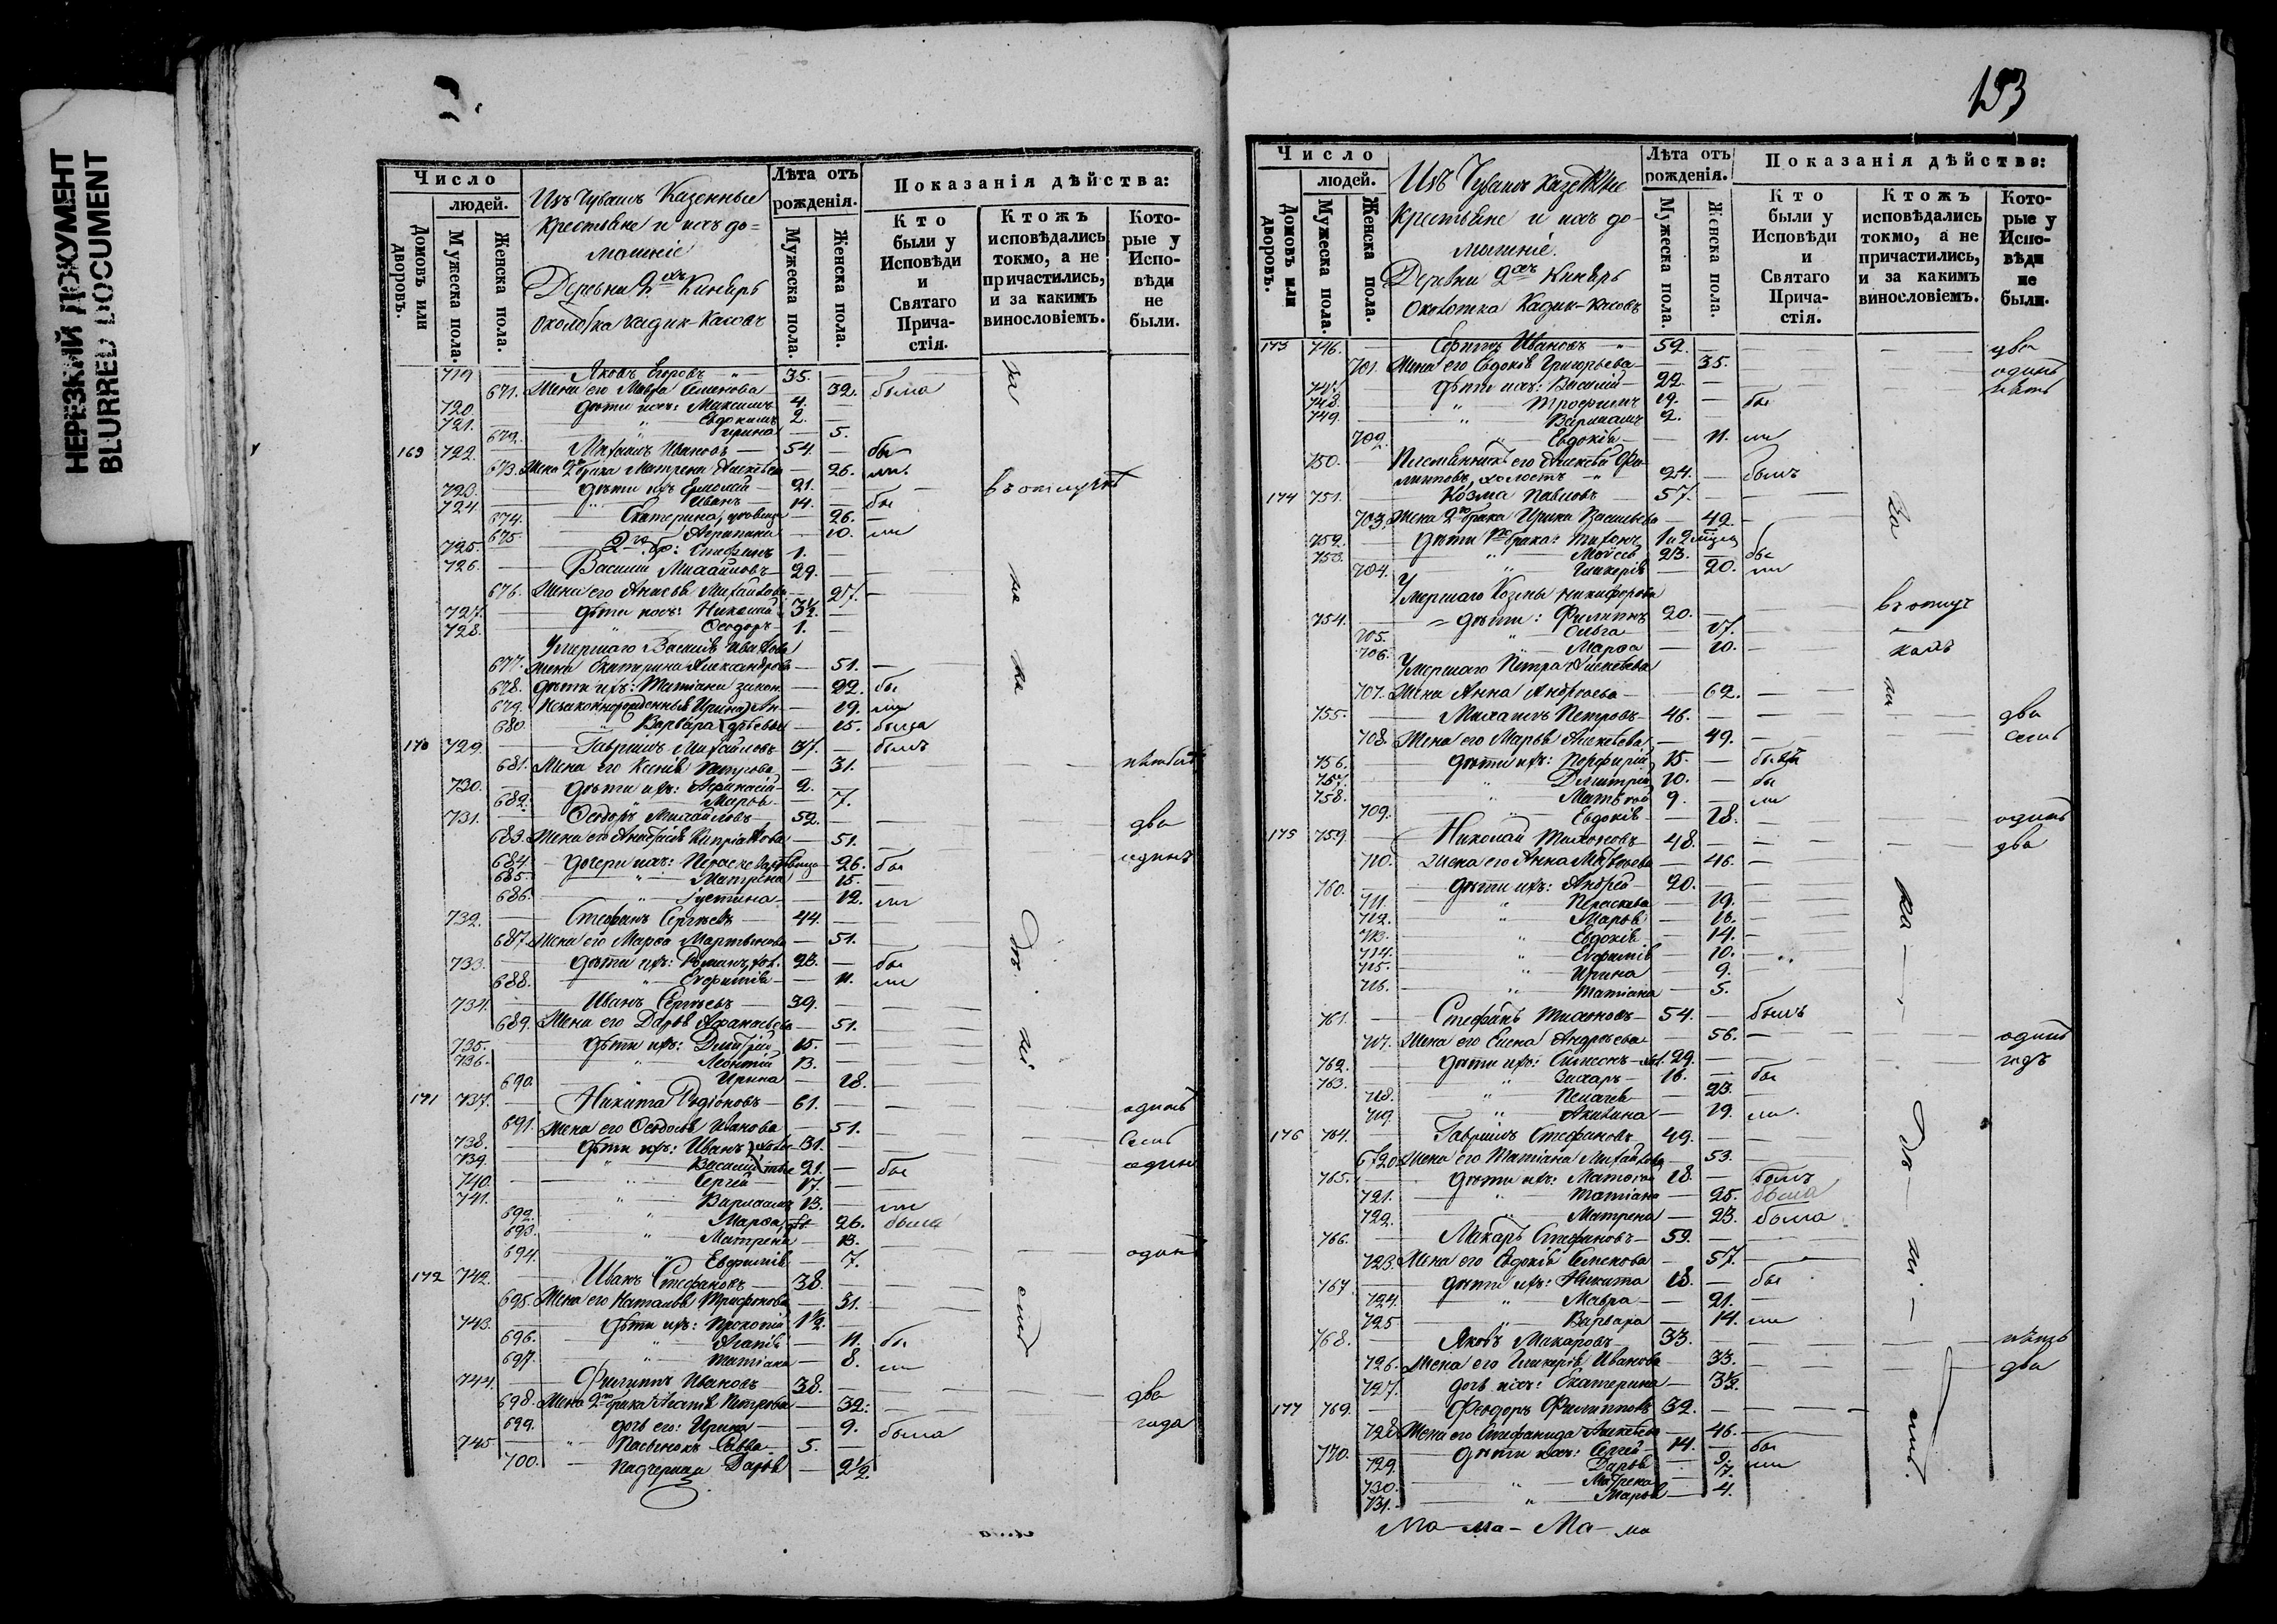 НЕРЕЗКИЙ ДОКУМЕНТ
BLURRED DOCUMENT
Число
людей.
Домовъ или дворовъ.
Мужеска пола.
Женска пола.
Изъ Чувашъ Казенные
крестьяне и ихъ до=
машніе
Деревни 2хъ Кинеръ
околотка Кадик-Касовъ
Лѣта отъ рожденія.
Мужеска пола.
Женска пола.
Показанія дѣйства:
Кто были у Исповѣди и Святаго Причастія.
Ктожъ исповѣдались токмо, а не причастились, и за какимъ винословіемъ.
Которые у Исповѣди не были.
719 Яковъ Егоровъ 35.
671. Жена его Мавра Семенова 32. была
720. дѣти ихъ: Максимъ 4.
721. " Евдокимъ 2.
672. " Ирина 5.
169 722. Михаилъ Ивановъ 54. бы
673. Жена 2го брака Матрена Алексѣева 26. ли
723. дѣти ихъ Ермолай 21. въ отлучкѣ
724. " Иванъ 14. бы
674. Екатерина, вдовица 26.
675. Агрипина 10. ли
725. 2го бр: Стефанъ 1.
726. Василий Михайловъ 29.
676. Жена его Анисья Михайлова 27.
727. дѣти ихъ: Николай 3½.
728. " Ѳеодоръ 1.
Умершаго Василія Иванова
677. жена Екатерина Александрова 51.
678. дѣти ихъ: Татіана закон. 22. бы
679. Незаконнорожденныя Ирина 19. ли
680. Варвара 15. была
170 729. Гавриилъ Михайловъ 37. былъ
681. Жена его Ксенія Петрова 31.
730. дѣти ихъ: Афанасій 2.
682. " Марѳа 7.
731. Ѳеодоръ Михайловъ 52. два
683. Жена его Анастасія Кипріанова 51.
684. дочери ихъ: Параскева 26. бы один
685. " Матрена 15.
686. " Густина 12. ли
732. Стефанъ Сергѣевъ 44.
687. Жена его Марѳа Мартынова 51.
733. дѣти ихъ: Романъ, хол. 23. бы
688. " Евфимія 11. ли
734. Иванъ Сергѣевъ 39.
689. Жена его Дарья Афанасьева 51.
735. дѣти ихъ: Дмитрій 15.
736. " Леонтій 13.
690. " Ирина 18.
171 737. Никита Родіоновъ 61. одинъ
691. Жена его Ѳеодосья Иванова 51.
738. дѣти ихъ: Иванъ 31. семь
739. " Василій 21. бы один
740. " Сергѣй 17.
741. " Варлаамъ 13. ли
692. " Марѳа 26. была
693. " Матрена 13.
694. " Евфимія 7. один
172 742. Иванъ Стефановъ 38.
695. Жена его Наталья Трифонова 31.
743. дѣти ихъ: Прокопій 1½.
696. " Агапія 11. бы
697. " Татіана 8. ли
744. Филиппъ Ивановъ 38.
698. Жена 2го брака Агапія Петрова 32. два
699. дочь его: Ирина 9. была года
745 " Пасынокъ Савва 5.
700. Падчерица Дарья 2½.
153
Число
людей.
Домовъ или дворовъ.
Мужеска пола.
Женска пола.
Изъ Чувашъ казенные
крестьяне и ихъ до
машніе.
Деревни 2хъ Кинеръ
Околотка Кадик-Касовъ
Лѣта отъ рожденія.
Мужеска пола.
Женска пола.
Показанія дѣйства:
Кто были у Исповѣди и Святаго Причастія.
Ктожъ исповѣдались токмо, а не причастились, и за какимъ винословіемъ.
Которые у Исповѣди не были.
173 746. Ивановъ 52. два
701. Жена его Евдокія Григорьева 35. одинъ
747. дѣти ихъ: Василій 22.
748. " Трофимъ 19. бы
749. " Варлаамъ 2.
702. " Евдокія 11. ли
750. Племянникъ его Алексѣй Фи-
липповъ, холостъ 24. былъ
174 751. Козма Павловъ 57.
703. Жена 2го брака Ирина Васильева 42.
752. дѣти 1го брака: Тихонъ
753. " Моѵсей 23. бы
704. " Гликерія 20. ли
Умершаго Козмы Никифорова
754. дѣти: Филиппъ 20. въ отлуч
705. " Ольга 17.
706. " Марѳа 10. кахъ
Умершаго Петра Алексѣева
707. Жена Анна Андреева 62.
755. Михаилъ Петровъ 46. два
708. Жена его Марья Алексѣева 49. семь
756. дѣти ихъ: Порфирій 15. былъ
757. " Дмитрій 10. бы
758. " Матвѣй 9. ли
709. " Евдокія 18. одинъ
175 759. Николай Тихоновъ 48. два
710. Жена его Анна Матвѣева 46.
760. дѣти ихъ: Андрей 20.
711. " Параскева 19.
712. " Марѳа 16.
713. " Евдокія 14.
714. " Евфимія 10.
715. " Ирина 9.
716. " Татіана 5.
761. Стефанъ Тихоновъ 54. былъ
717. Жена его Елена Андреева 56. одинъ
762. дѣти ихъ: Симеонъ хол. 29. годъ
763. " Захаръ 16. бы
718. " Пелагея 23.
719. " Акилина 19. ли
176 764. Гавриилъ Стефановъ 49.
720. Жена его Татіана Михайлова 53.
765. дѣти ихъ: Матвѣй 18. былъ
721. " Татіана 25. была
722. " Матрена 23. была
766. Макаръ Стефановъ 59.
723. Жена его Евдокія Семенова 57.
767. дѣти ихъ: Никита 18. бы
724. " Мавра 21.
725 " Варвара 14. ли
768. Яковъ Макаровъ 33.
726. Жена его Гликерія Иванова 33. два
727. дочь ихъ: Екатерина 3½.
177 769. Ѳеодоръ Филипповъ 32.
728. Жена его Стефанида Алексѣева 46.
770. дѣти ихъ: Сергѣй 14. бы
729. Дарья 9. ли
730. " Матрена 7.
731. " Марѳа 4.